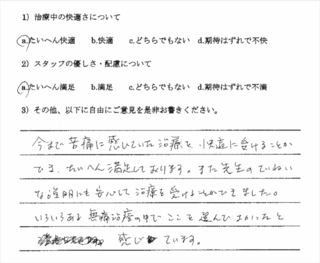 1）治療中の快適さについて
a.たいへん快適 b.快適 c.どちらでもない d.期待はずれで不快
2）スタッフの優しさ・配慮について
a.たいへん満足 b.満足 c.どちらでもない d.期待はずれで不満
3）その他、以下に自由にご意見を是非お書きください。
今まで苦痛に感じていた治療を快適に受けることが
でき、たいへん満足しております。また先生のていねい
な説明にも安心して治療を受けることができました。
いろいろある無痛治療の中でここを選んでよかったと
感じています。